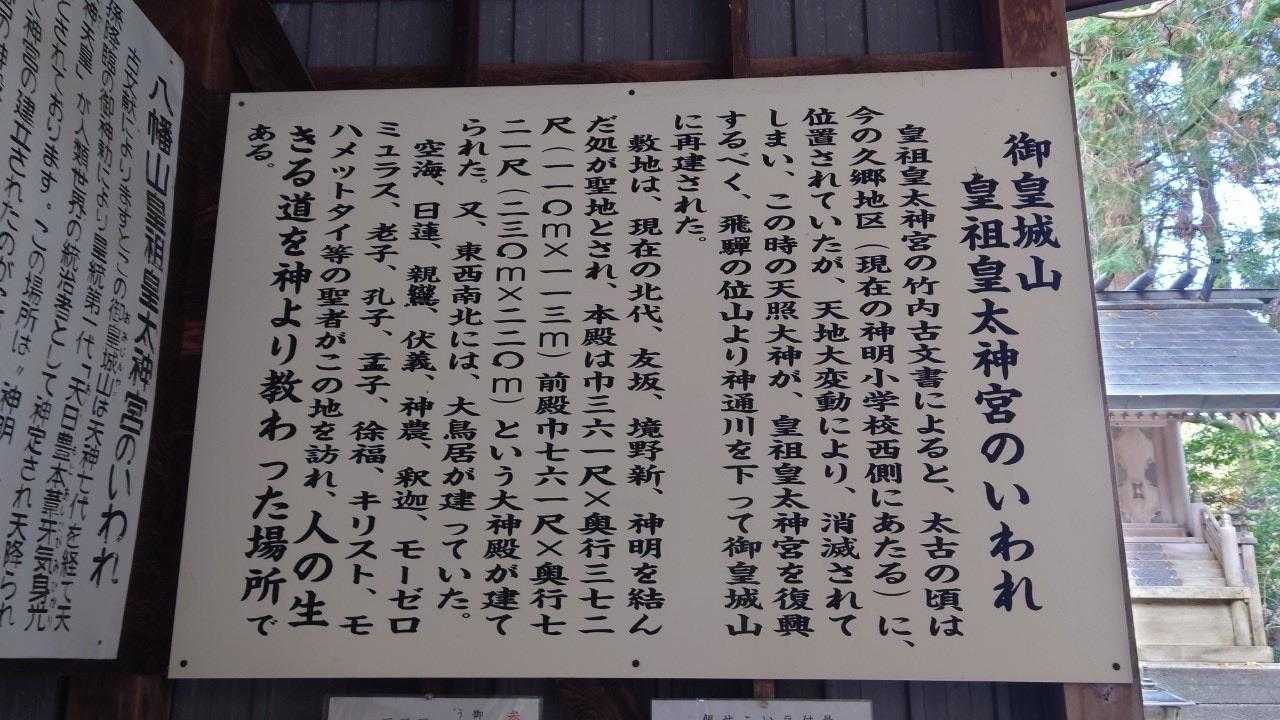 御皇城山
皇祖皇太神宮のいわれ
皇祖皇太神宮の竹内古文書によると、太古の頃は
今の久郷地区（現在の神明小学校西側にあたる）に、
位置されていたが、天地大変動により、消滅されて
しまい、この時の天照大神が、皇祖皇太神宮を復興
するべく、飛騨の位山より神通川を下って御皇城山
に再建された。
敷地は、現在の北代、友坂、境野新、神明を結ん
だ処が聖地とされ、本殿は巾三六一尺×奥行三七二
尺（一一〇m×一一三m）前殿巾七六一尺×奥行七
二一尺（二三〇m×二二〇m）という大神殿が建て
られた。又、東西南北には、大鳥居が建っていた。
空海、日蓮、親鸞、伏義、神農、釈迦、モーゼロ
ミュラス、老子、孔子、孟子、徐福、キリスト、モ
ハメットタイ等の聖者がこの地を訪れ、人の生
きる道を神より教わった場所で
ある。
八幡山皇祖皇太神宮のいわれ
古文献によりますとこの御皇城山は天神七代を経て天
孫降臨の御神勅により皇統第一代「天日豊本葦牙気身光
神天皇」が人類世界の統治者として神定され天降られ
とされております。この場所は〝神明